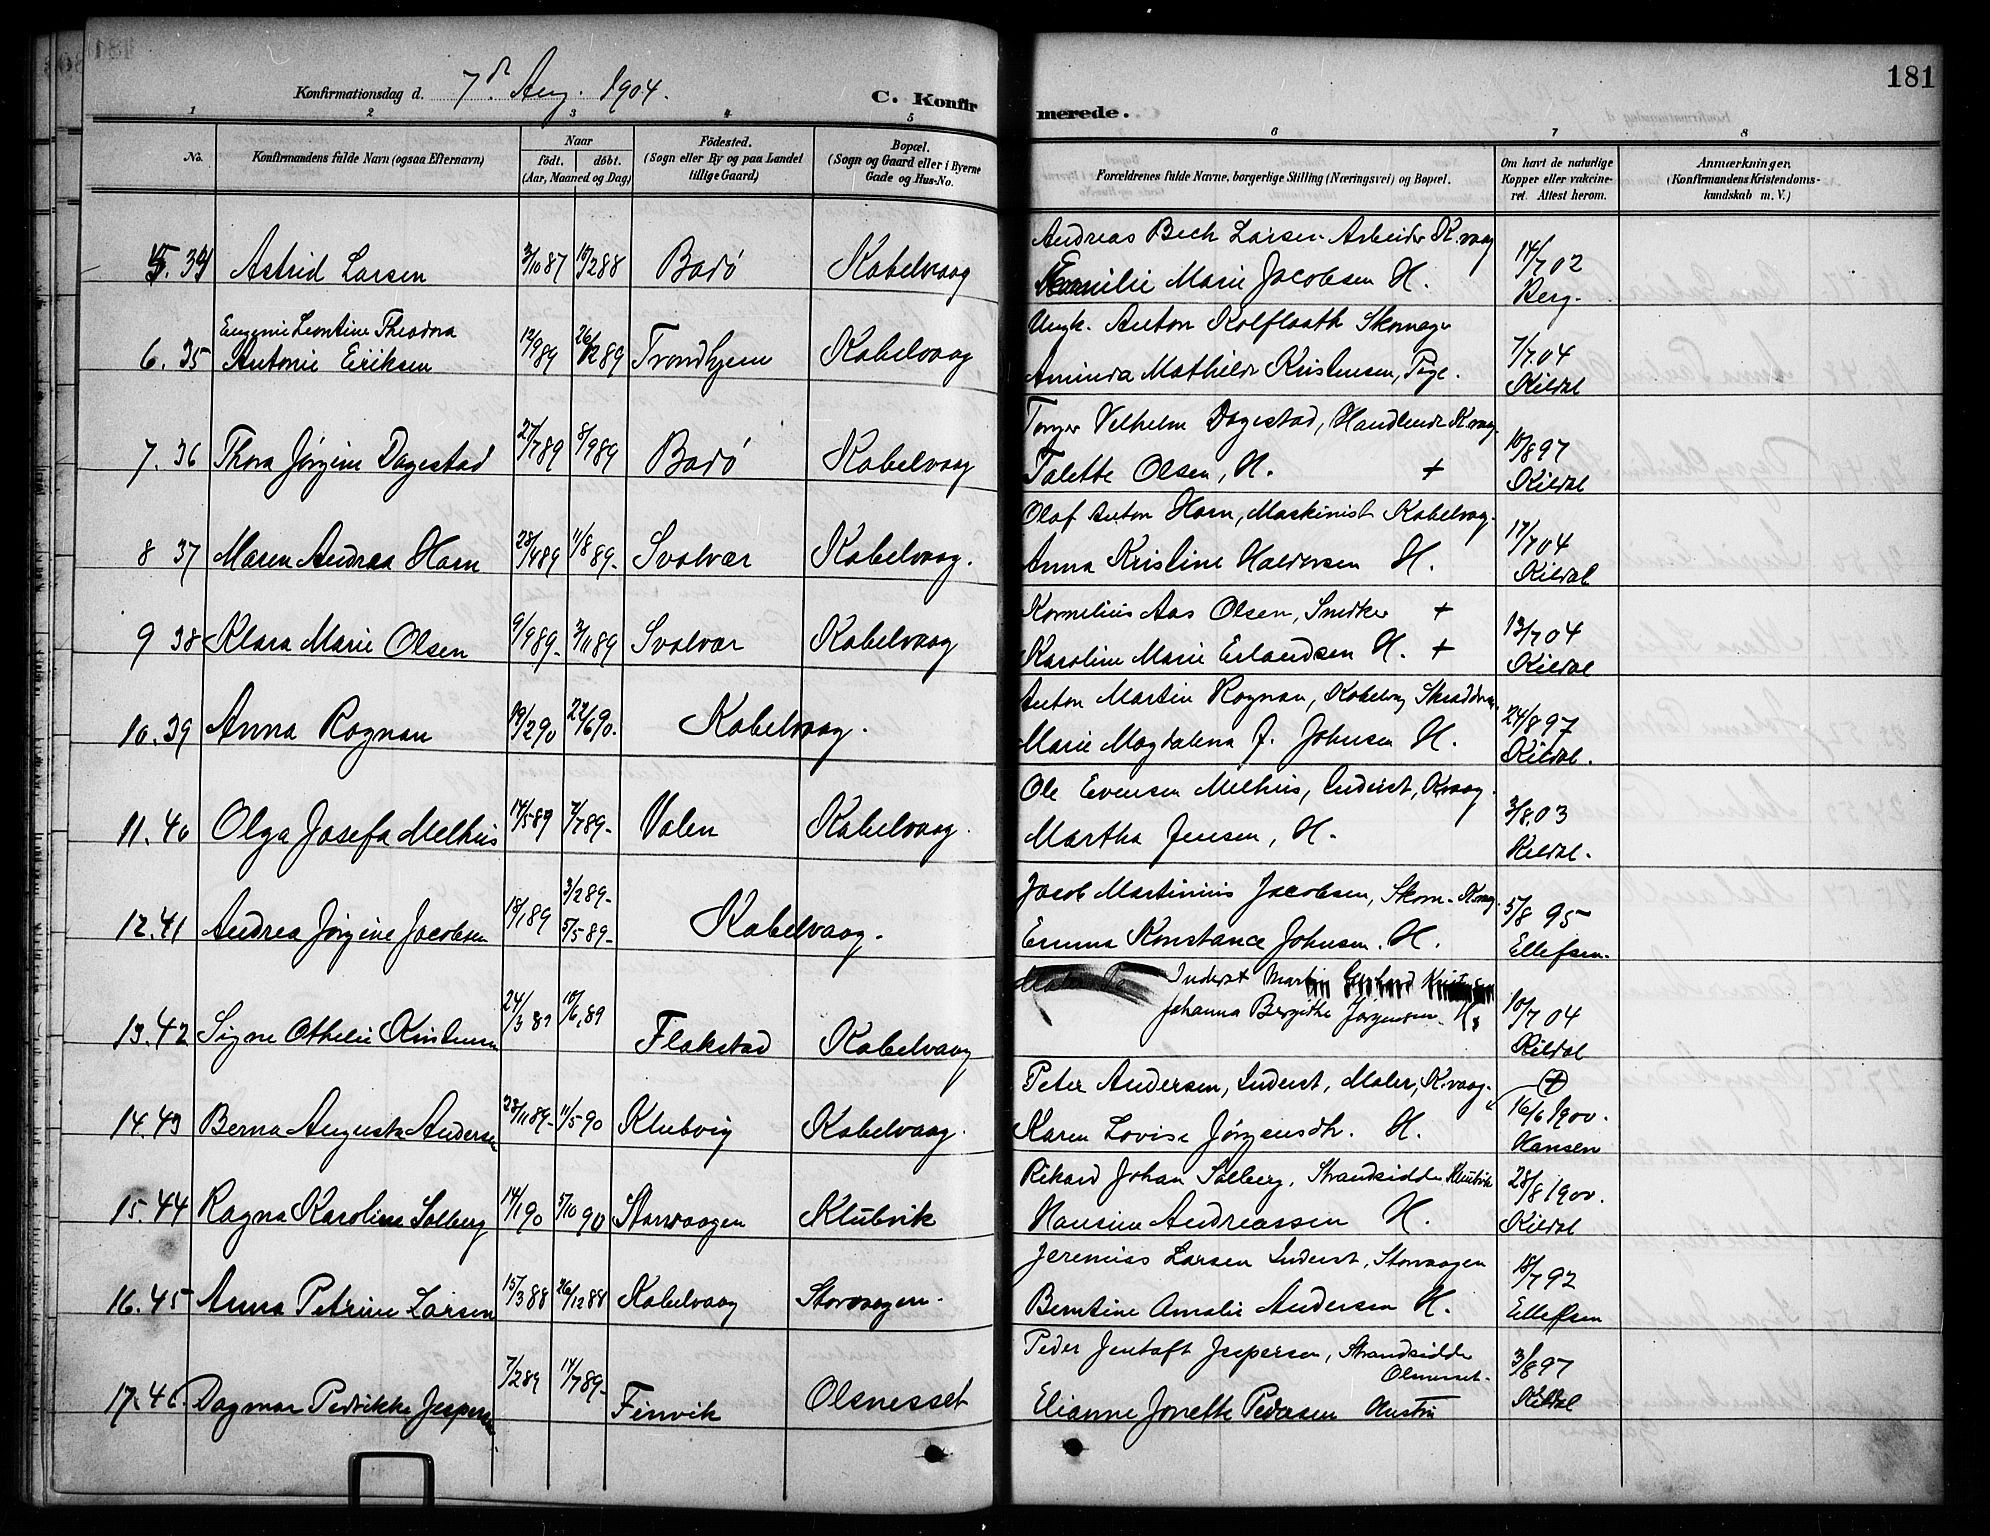 181
Konfirmationsdag d. 7de Aug. 1904.
C. Konfirmerede.
1 2 3 4 5 6 7 8
No.
Konfirmandens fulde Navn (ogsaa Efternavn)
Naar
Födt. döbt.
(Aar, Maaned og Dag)
Födested.
(Sogn eller By og paa Landet
tillige Gaard)
Bopæl.
(Sogn og Gaard eller i Byerne
Gade og Hus-No.
Forældrenes fulde Navne, borgerlige Stilling (Næringsvei) og Bopæl.
Om havt de naturlige
Kopper eller vakcine-
ret. Attest herom.
Anmærkninger.
(Konfirmandens Kristendoms-
kundskab m. V.)
5. 34 Astrid Larsen 3/10 87 10/2 88 Bodö Kabelvaag
Andreas Bech Larsen. Arbeider K.vaag
Emilie Marie Jacobsen H.
14/7 02
Berg.
6. 35 Eugenie Leontine Theodora
Antonie Eriksen 12/9 89 26/12 89 Trondhjem Kabelvaag
Ungk. Anton Kolflaath Skomager
Aminda Mathilde Kristensen, Pige.
7/7 04
Kildal
7. 36 Thora Jörgine Dagestad 27/7 89 8/9 89 Bodö Kabelvaag
Torger Velhelm Dagestad, Handlende K.vaag
Talette Olsen, H. +
10/8 97
Kildal
8 37 Maren Andrea Horn 28/4 89 11/8 89. Svolvær Kabelvaag.
Olaf Anton Horn, Maskinist Kabelvag.
Anna Kristine Haldorsen H.
17/7 04
Kildal
9 38 Klara Marie Olsen 9/9 89. 3/11 89 Svolvær Kabelvaag
Kornelius Aas Olsen, Snedker +
Karoline Marie Erlandsen H. +
13/7 04
Kildal
10. 39 Anna Rognan 19/2 90 22/6 90. Kabelvaag.
Anton Martin Rognan, Kabelvag Skrædder
Marie Magdalena J. Johnsen H.
24/8 97
Kildal.
11. 40 Olga Josefa Melhus 14/5 89 7/7 89. Valen Kabelvaag.
Ole Evensen Melhus, Inderst, K.vaag.
Martha Jensen, H.
3/8. 03
Kildal.
12. 41 Andrea Jörgine Jacobsen 18/1 89 3/2 89.
5/5 89. Kabelvaag.
Jacob Martinius Jacobsen, Skom. K.vag
Emma Konstance Johnsen. H.
5/8 95
Ellefsen.
13. 42 Signe Othelie Kristensen 24/3 89 10/6. 89 Flakstad Kabelvaag
Inderst Martin Gerhard Kristensen
Johanna Bergithe Jørgensen. H.
10/7 04
Kildal
14. 43 Berna Augusta Andersen 28/11 89. 11/5 90 Klubvig Kabelvaag.
Peter Andersen, Inderst, Maler, K.vaag. +
Karen Lovise Jörgensdtr. H.
16/6 1900.
Hansen
15. 44 Ragna Karoline Solberg 14/1 90 5/10 90 Storvaagen Klubvik
Rikard Johan Solberg, Strandsidder Klubvik
Hansine Andreassen H.
28/8 1900.
Kildal
16. 45 Anna Petrine Larsen 15/3 88 26/12 88 Kabelvaag Storvaagen.
Jeremias Larsen Inderst, Storvaagen
Berntine Amalie Andersen H.
18/7 92
Ellefsen
17. 46. Dagmar Pedrikke Jespersen 7/2 89 14/7 89. Finvik Olsnesset
Peder Jentoft Jespersen, Strandsidder
Olsnesset.
Elianne Jonette Pedersen Hustru
3/8 97
Kildal